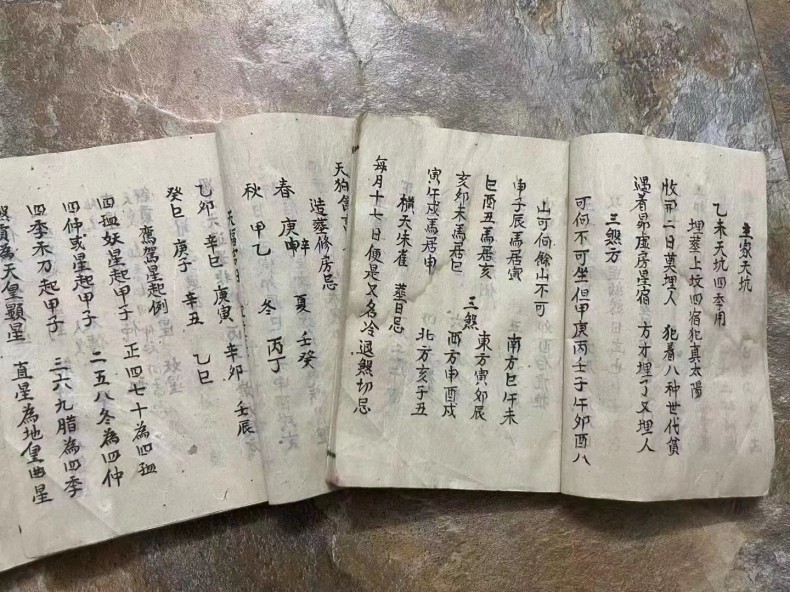 主家天坑
乙未天坑四季用
埋葬上坟四宿犯真太陽
收開二日莫埋人 犯着八种世代貧
遇着昴虚房星宿 方才埋了又埋人
三煞方
可向不可坐但甲庚丙壬子午卯酉八
山可向餘山不可
申子辰馬居寅 南方巳午未
巳酉丑馬居亥 東方寅卯辰
三煞
亥卯未馬居巳 西方申酉戌
寅午戌馬居申 北方亥子丑
橫天朱雀 葬日忌
每月十七日便是又名冷退煞切忌
天狗
造葬修房忌
春 庚申辛 夏 壬癸
秋 甲乙 冬 丙丁
乙卯 辛巳 庚寅 辛卯 壬辰
癸巳 庚子 辛丑 乙巳
鴛鴦星起例
四孟妖星起甲子 正四七十為四孟
四仲或星起甲子 二五八冬為四仲
四季禾刀起甲子 三六九腊為四季
為天皇顯星 直星為地皇曲星